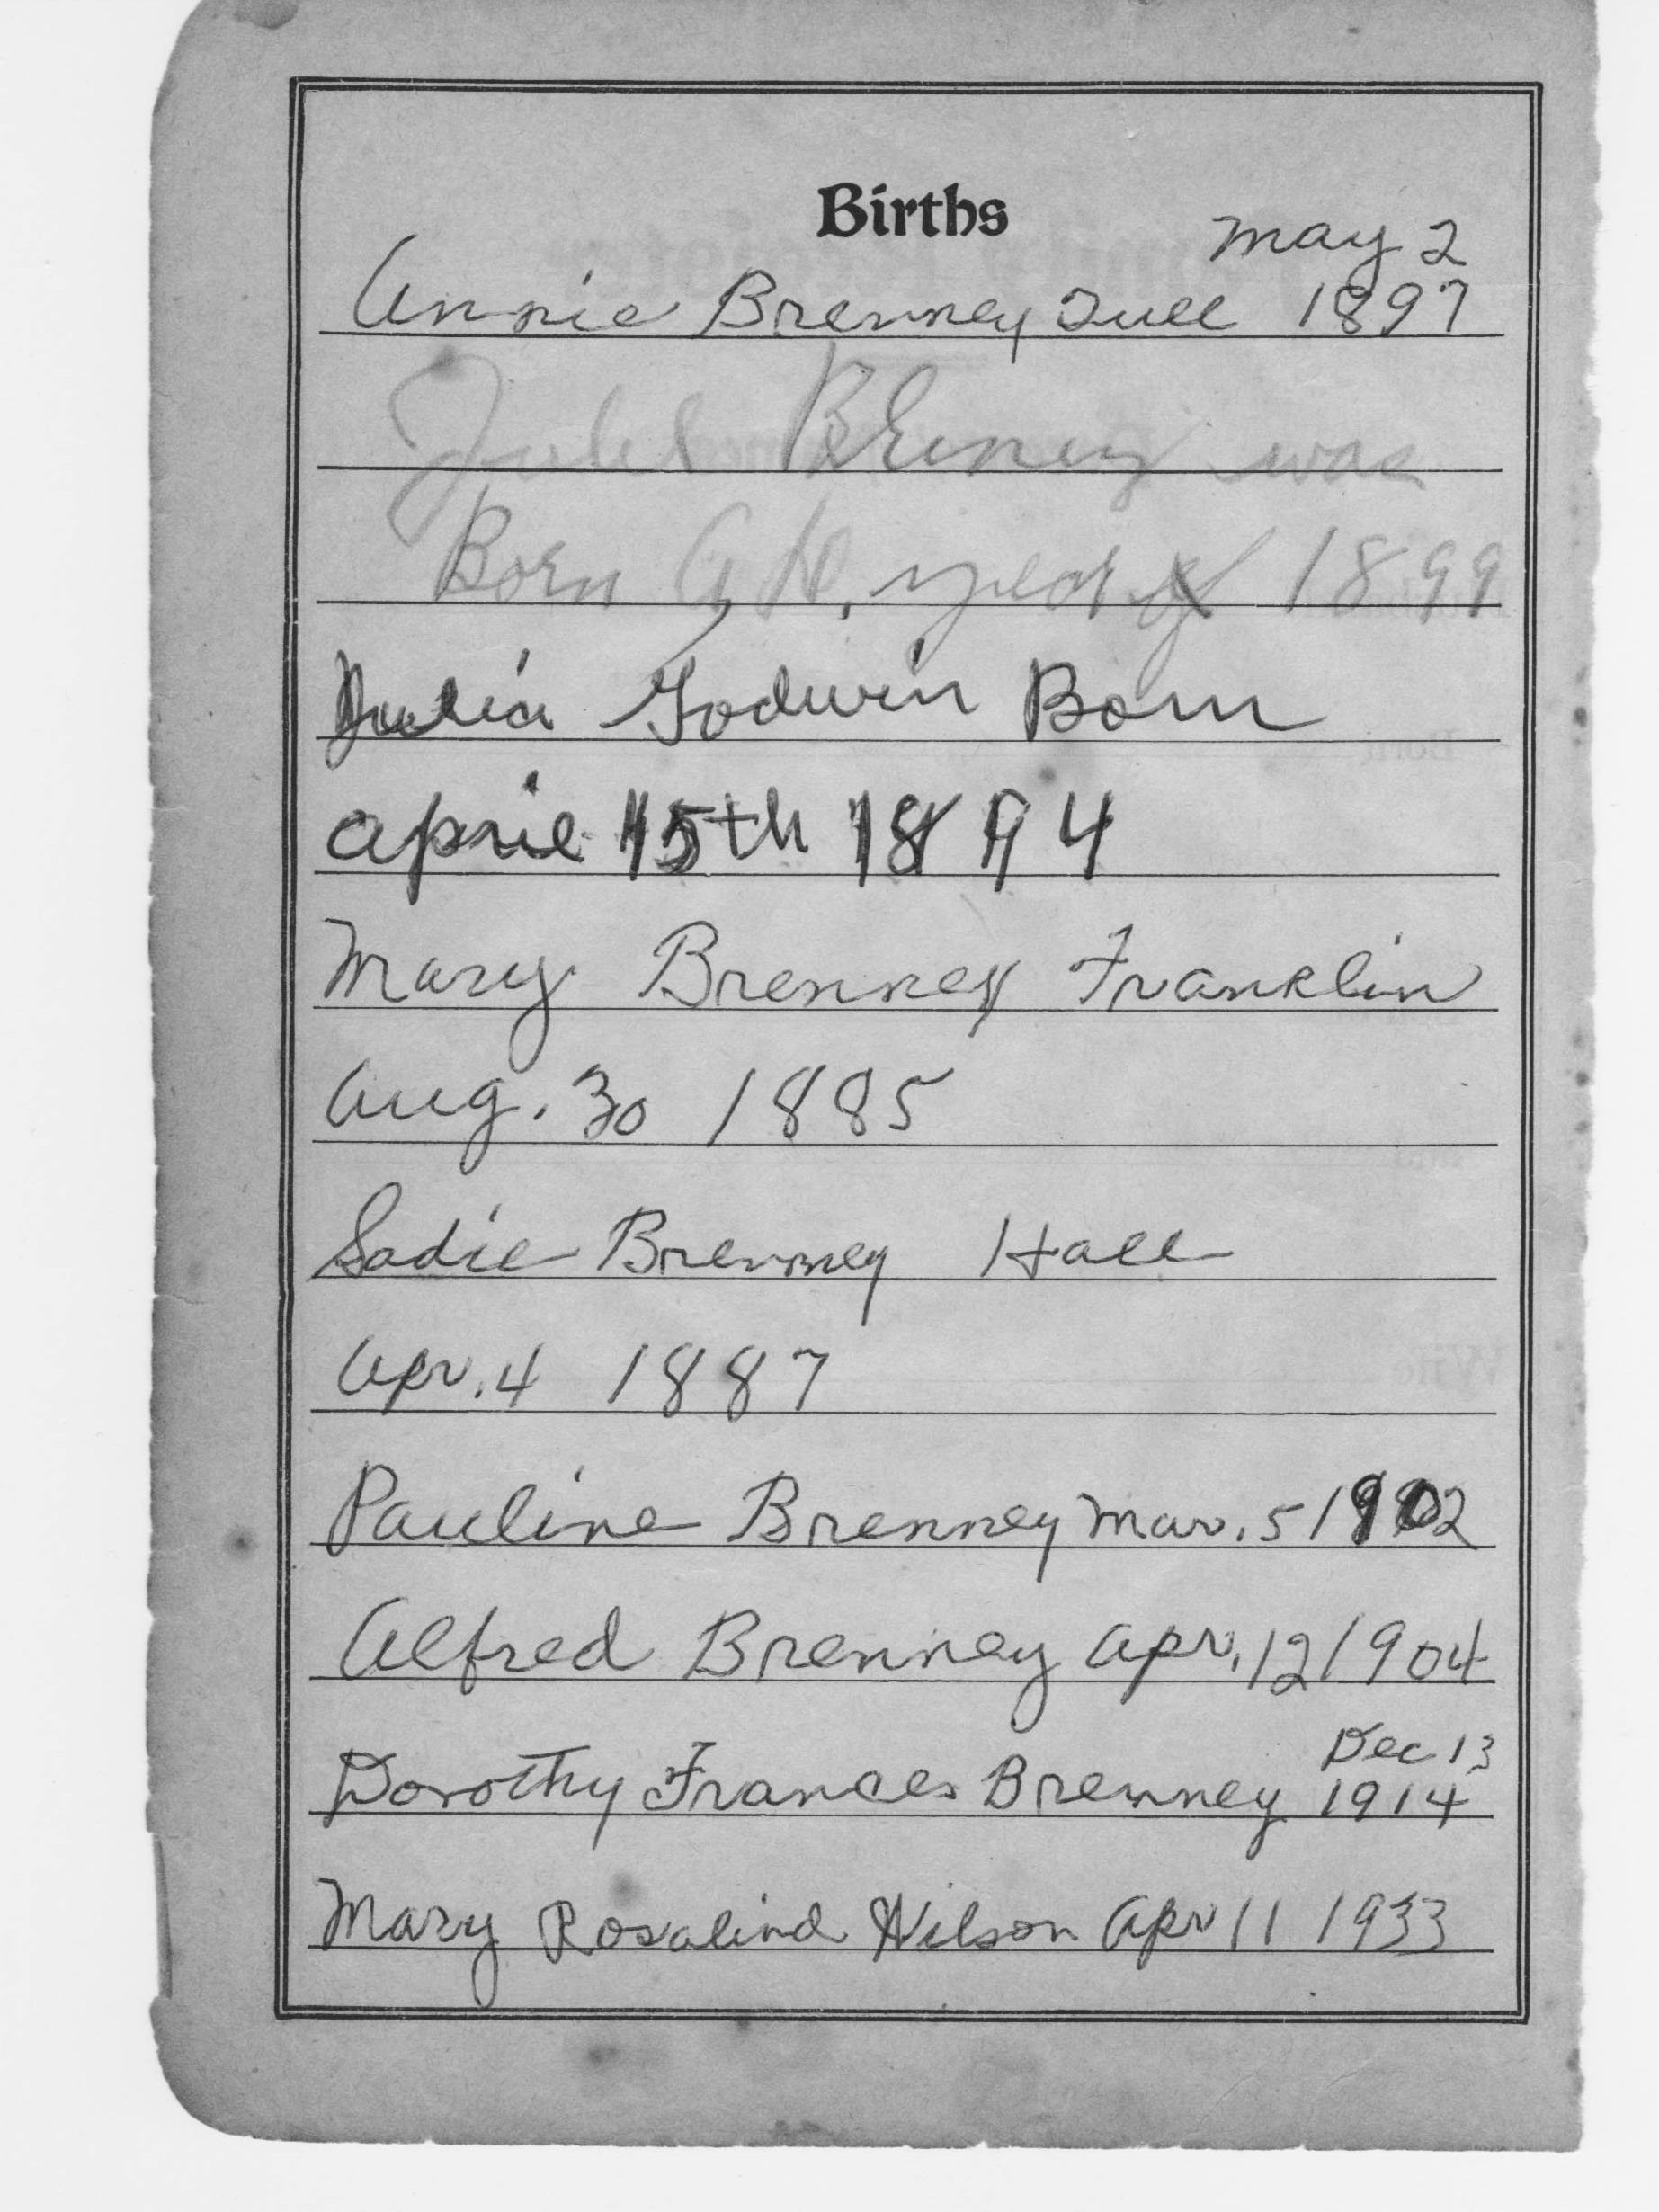 Births
May 2
Annie Brenney Tull 1897
was
Born year of 1899
Julia Godwin Born
April 15th 1894
Mary Brenney Franklin
Aug. 30 1885
Sadie Brenney Hall
Apr. 4 1887
Pauline Brenney Mar. 5 1902
Alfred Brenney Apr. 12 1904
Dec 13
Dorothy Frances Brenney 1914
Mary Rosalind Wilson Apr 11 1933